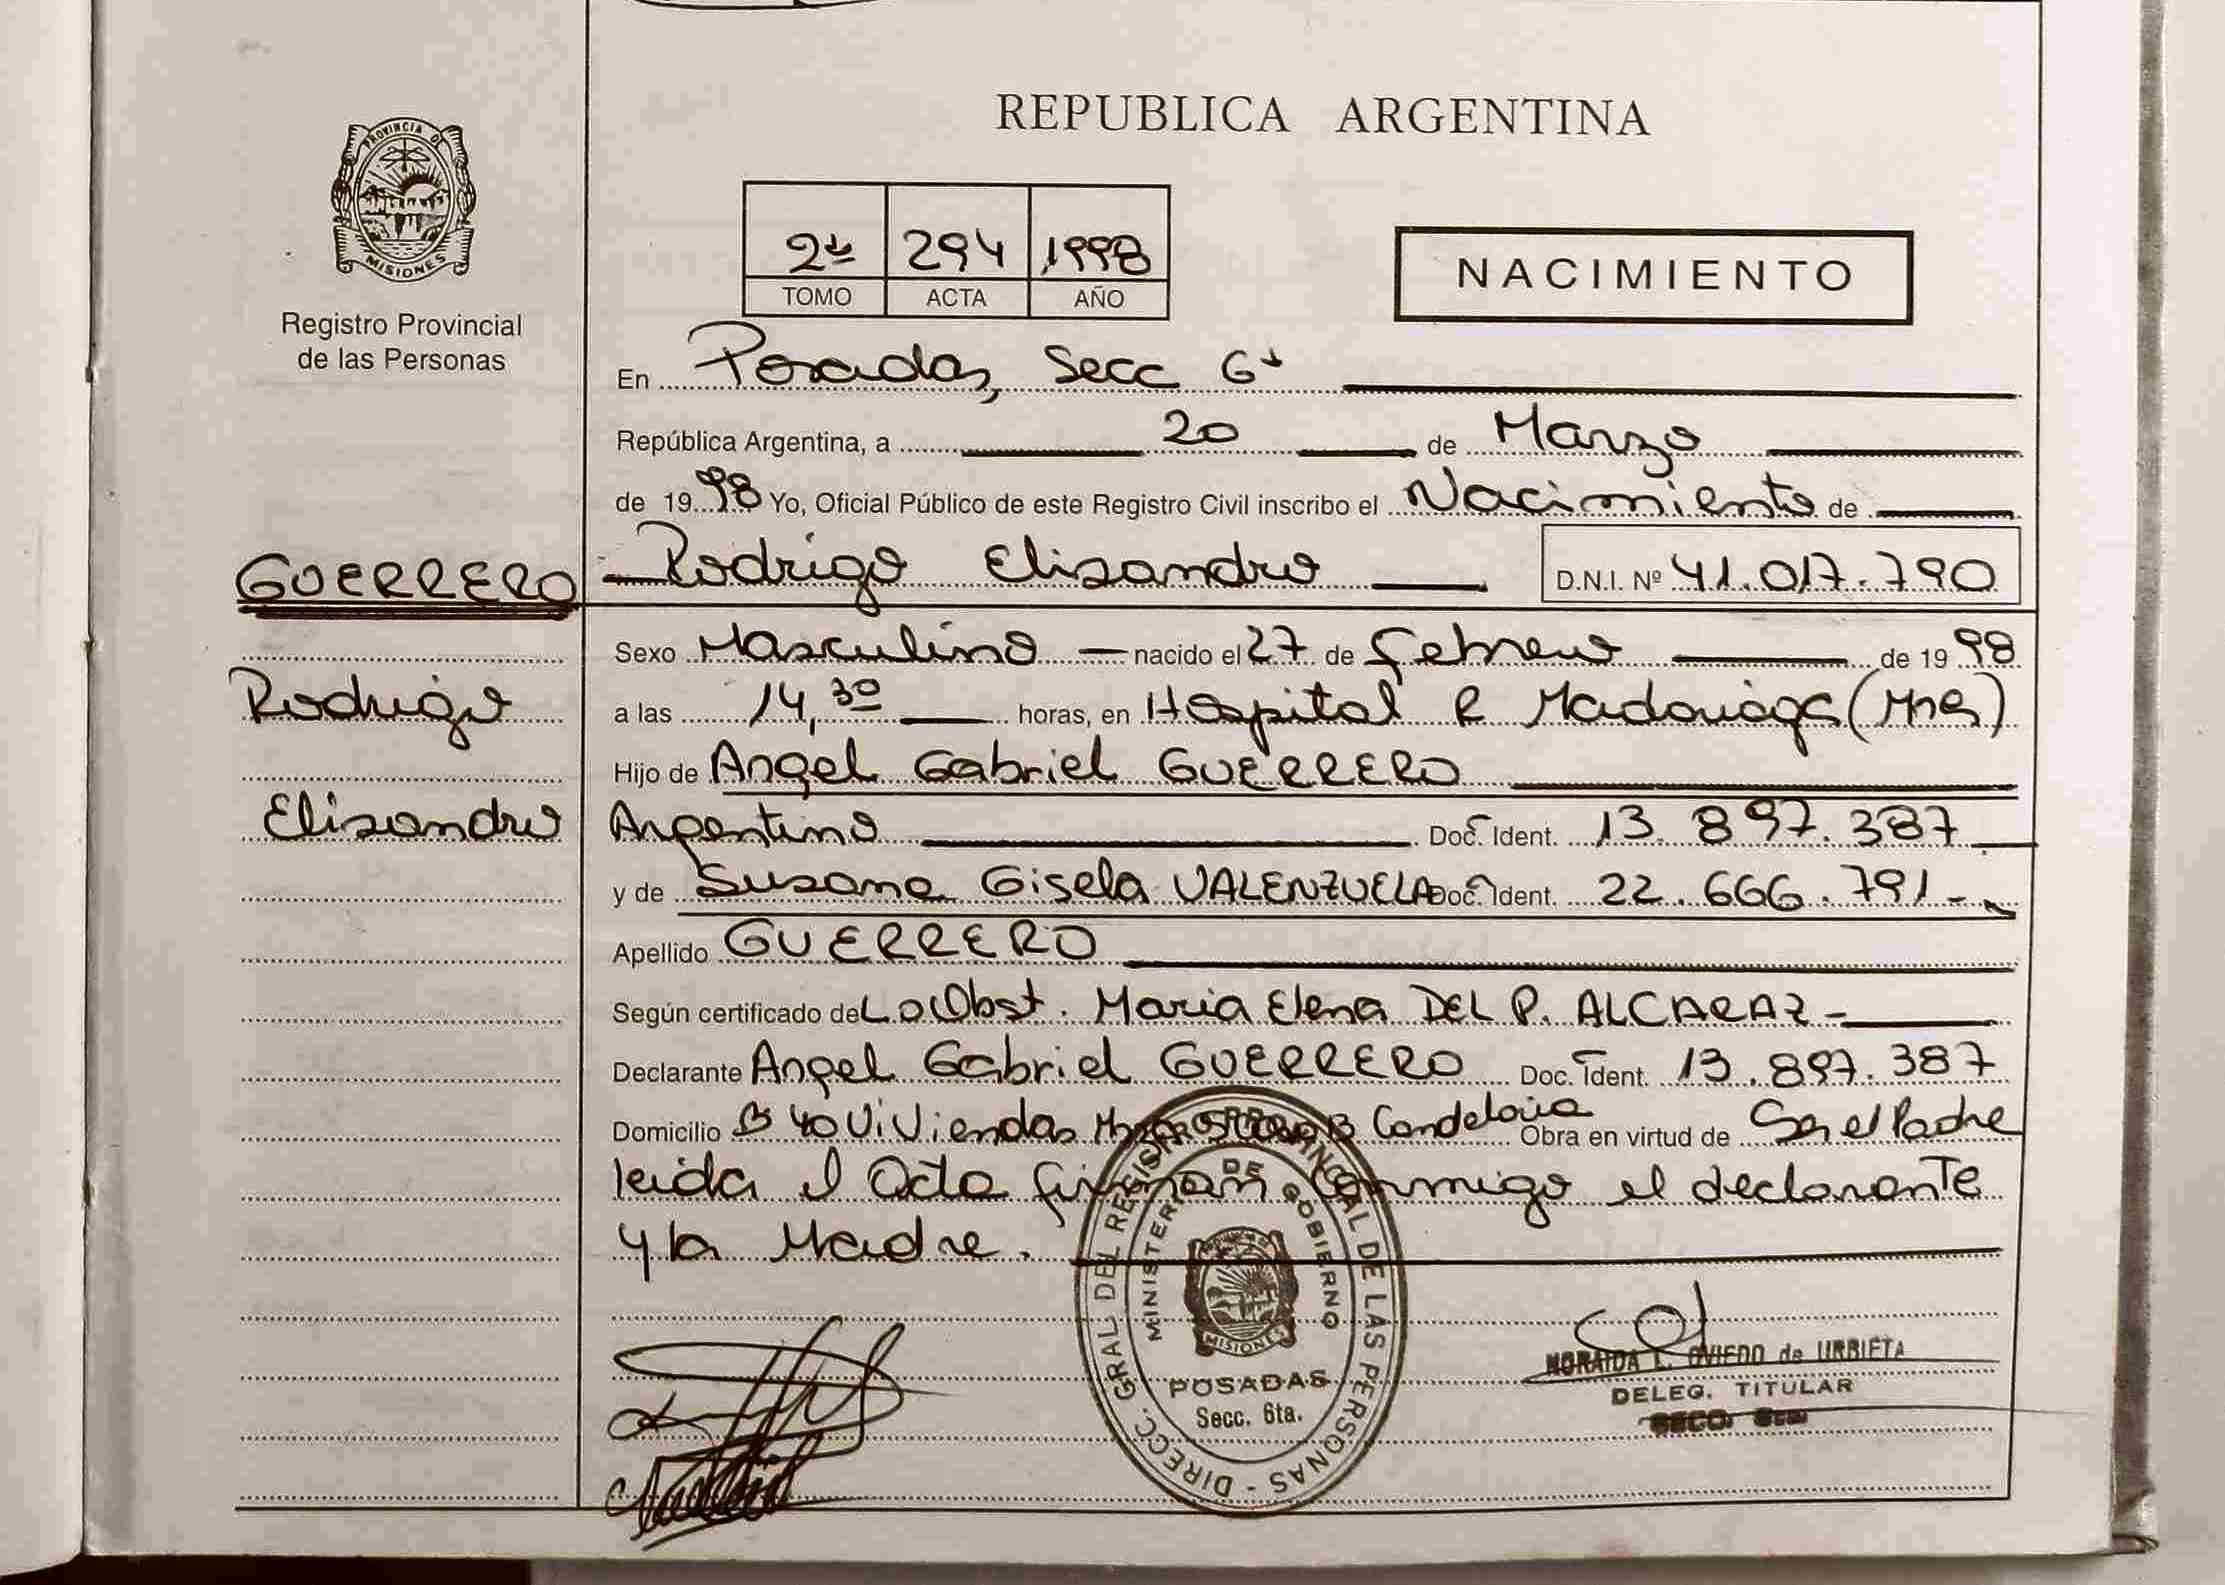 REPUBLICA ARGENTINA
PROVINCIA DE
MISIONES
Registro Provincial
de las Personas
2do 294 1998
TOMO ACTA AÑO
NACIMIENTO
En Posadas, Secc 6ta
República Argentina, a 20 de Marzo
de 1998 Yo, Oficial Público de este Registro Civil inscribo el Nacimiento de
GUERRERO
Rodrigo Elisandro D.N.I. Nº 41.017.790
Sexo Masculino nacido el 27 de Febrero de 1998
Rodrigo
a las 14,30 horas, en Hospital R Madariaga (Mnes)
Hijo de Angel Gabriel GUERRERO
Elisandro
Argentino Doc. Ident. 13.897.387
y de Susana Gisela VALENZUELA Doc. Ident. 22.666.791
Apellido GUERRERO
Según certificado de La Obst. Maria Elena DEL P. ALCARAZ
Declarante Angel Gabriel GUERRERO Doc. Ident. 13.897.387
Domicilio Bº 40 Viviendas Candelaria Obra en virtud de Ser el Padre
leida el Acta firman conmigo el declarante
y la Madre.
DIRECC. GRAL DEL REGISTRO PROVINCIAL DE LAS PERSONAS
MINISTERIO DE GOBIERNO
MISIONES
POSADAS
Secc. 6ta.
NORAIDA L. OVIEDO de URRIETA
DELEG. TITULAR
SECC. 6ta.